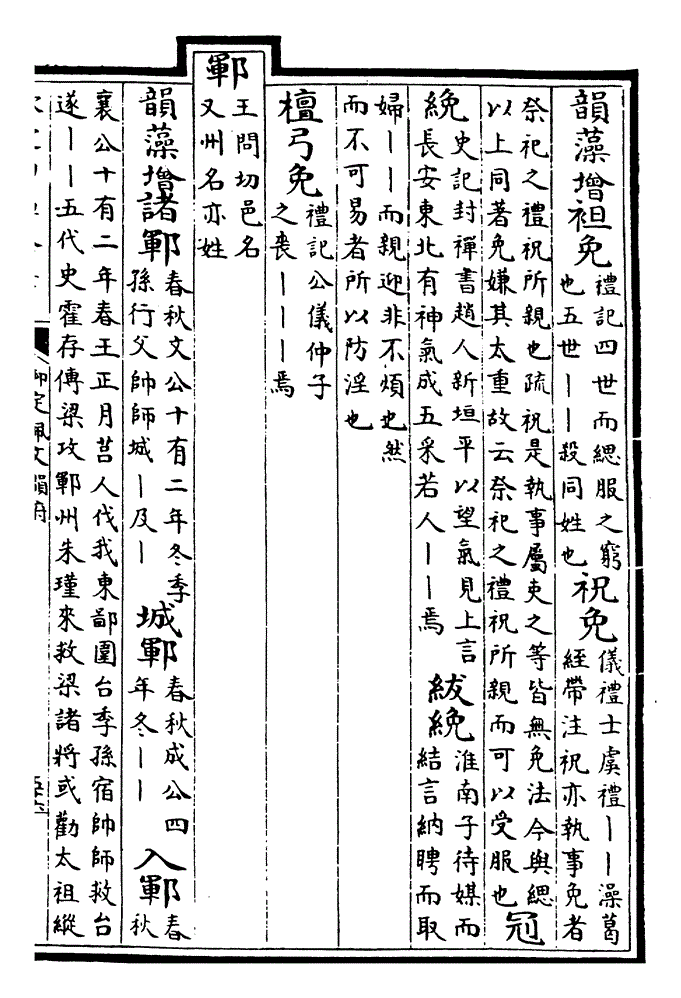 韻藻增袒免
禮記四世而緦服之窮
也五世丨丨殺同姓也
祝免
儀禮士虞禮丨丨澡葛
絰帶注祝亦執事免者
祭祀之禮祝所親也疏祝是執事屬吏之等皆無免法今與緦
以上同著免嫌其太重故云祭祀之禮祝所親而可以受服也
冠
絻
史記封禪書趙人新垣平以望氣見上言
長安東北有神氣成五采若人丨丨焉
紱絻
淮南子待媒而
結言納聘而取
婦丨丨而親迎非不煩也然
而不可易者所以防淫也
檀弓免
禮記公儀仲子
之喪丨丨丨焉
鄆
王問切邑名
又州名亦姓
韻藻增諸鄆
春秋文公十有二年冬季
孫行父帥師城丨及丨
城鄆
春秋成公四
年冬丨丨
入鄆
春
秋
襄公十有二年春王正月莒人伐我東鄙圍台季孫宿帥師救台
遂丨丨五代史霍存傳梁攻鄆州朱瑾來救梁諸將或勸太祖縱
御定佩文韻府